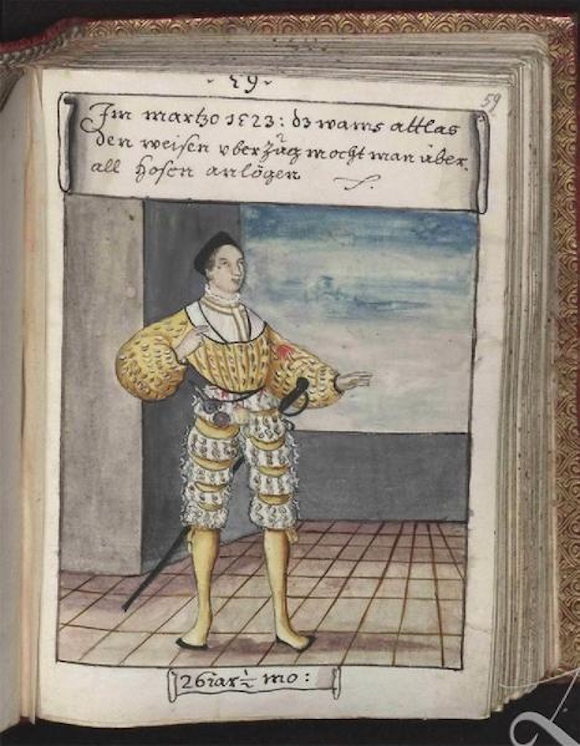 - 59 -
59
Im martzo 1523: dz wams attlas
den weisen vberzúg mocht man úber
all hosen anlögen
26 iar ½ mo: